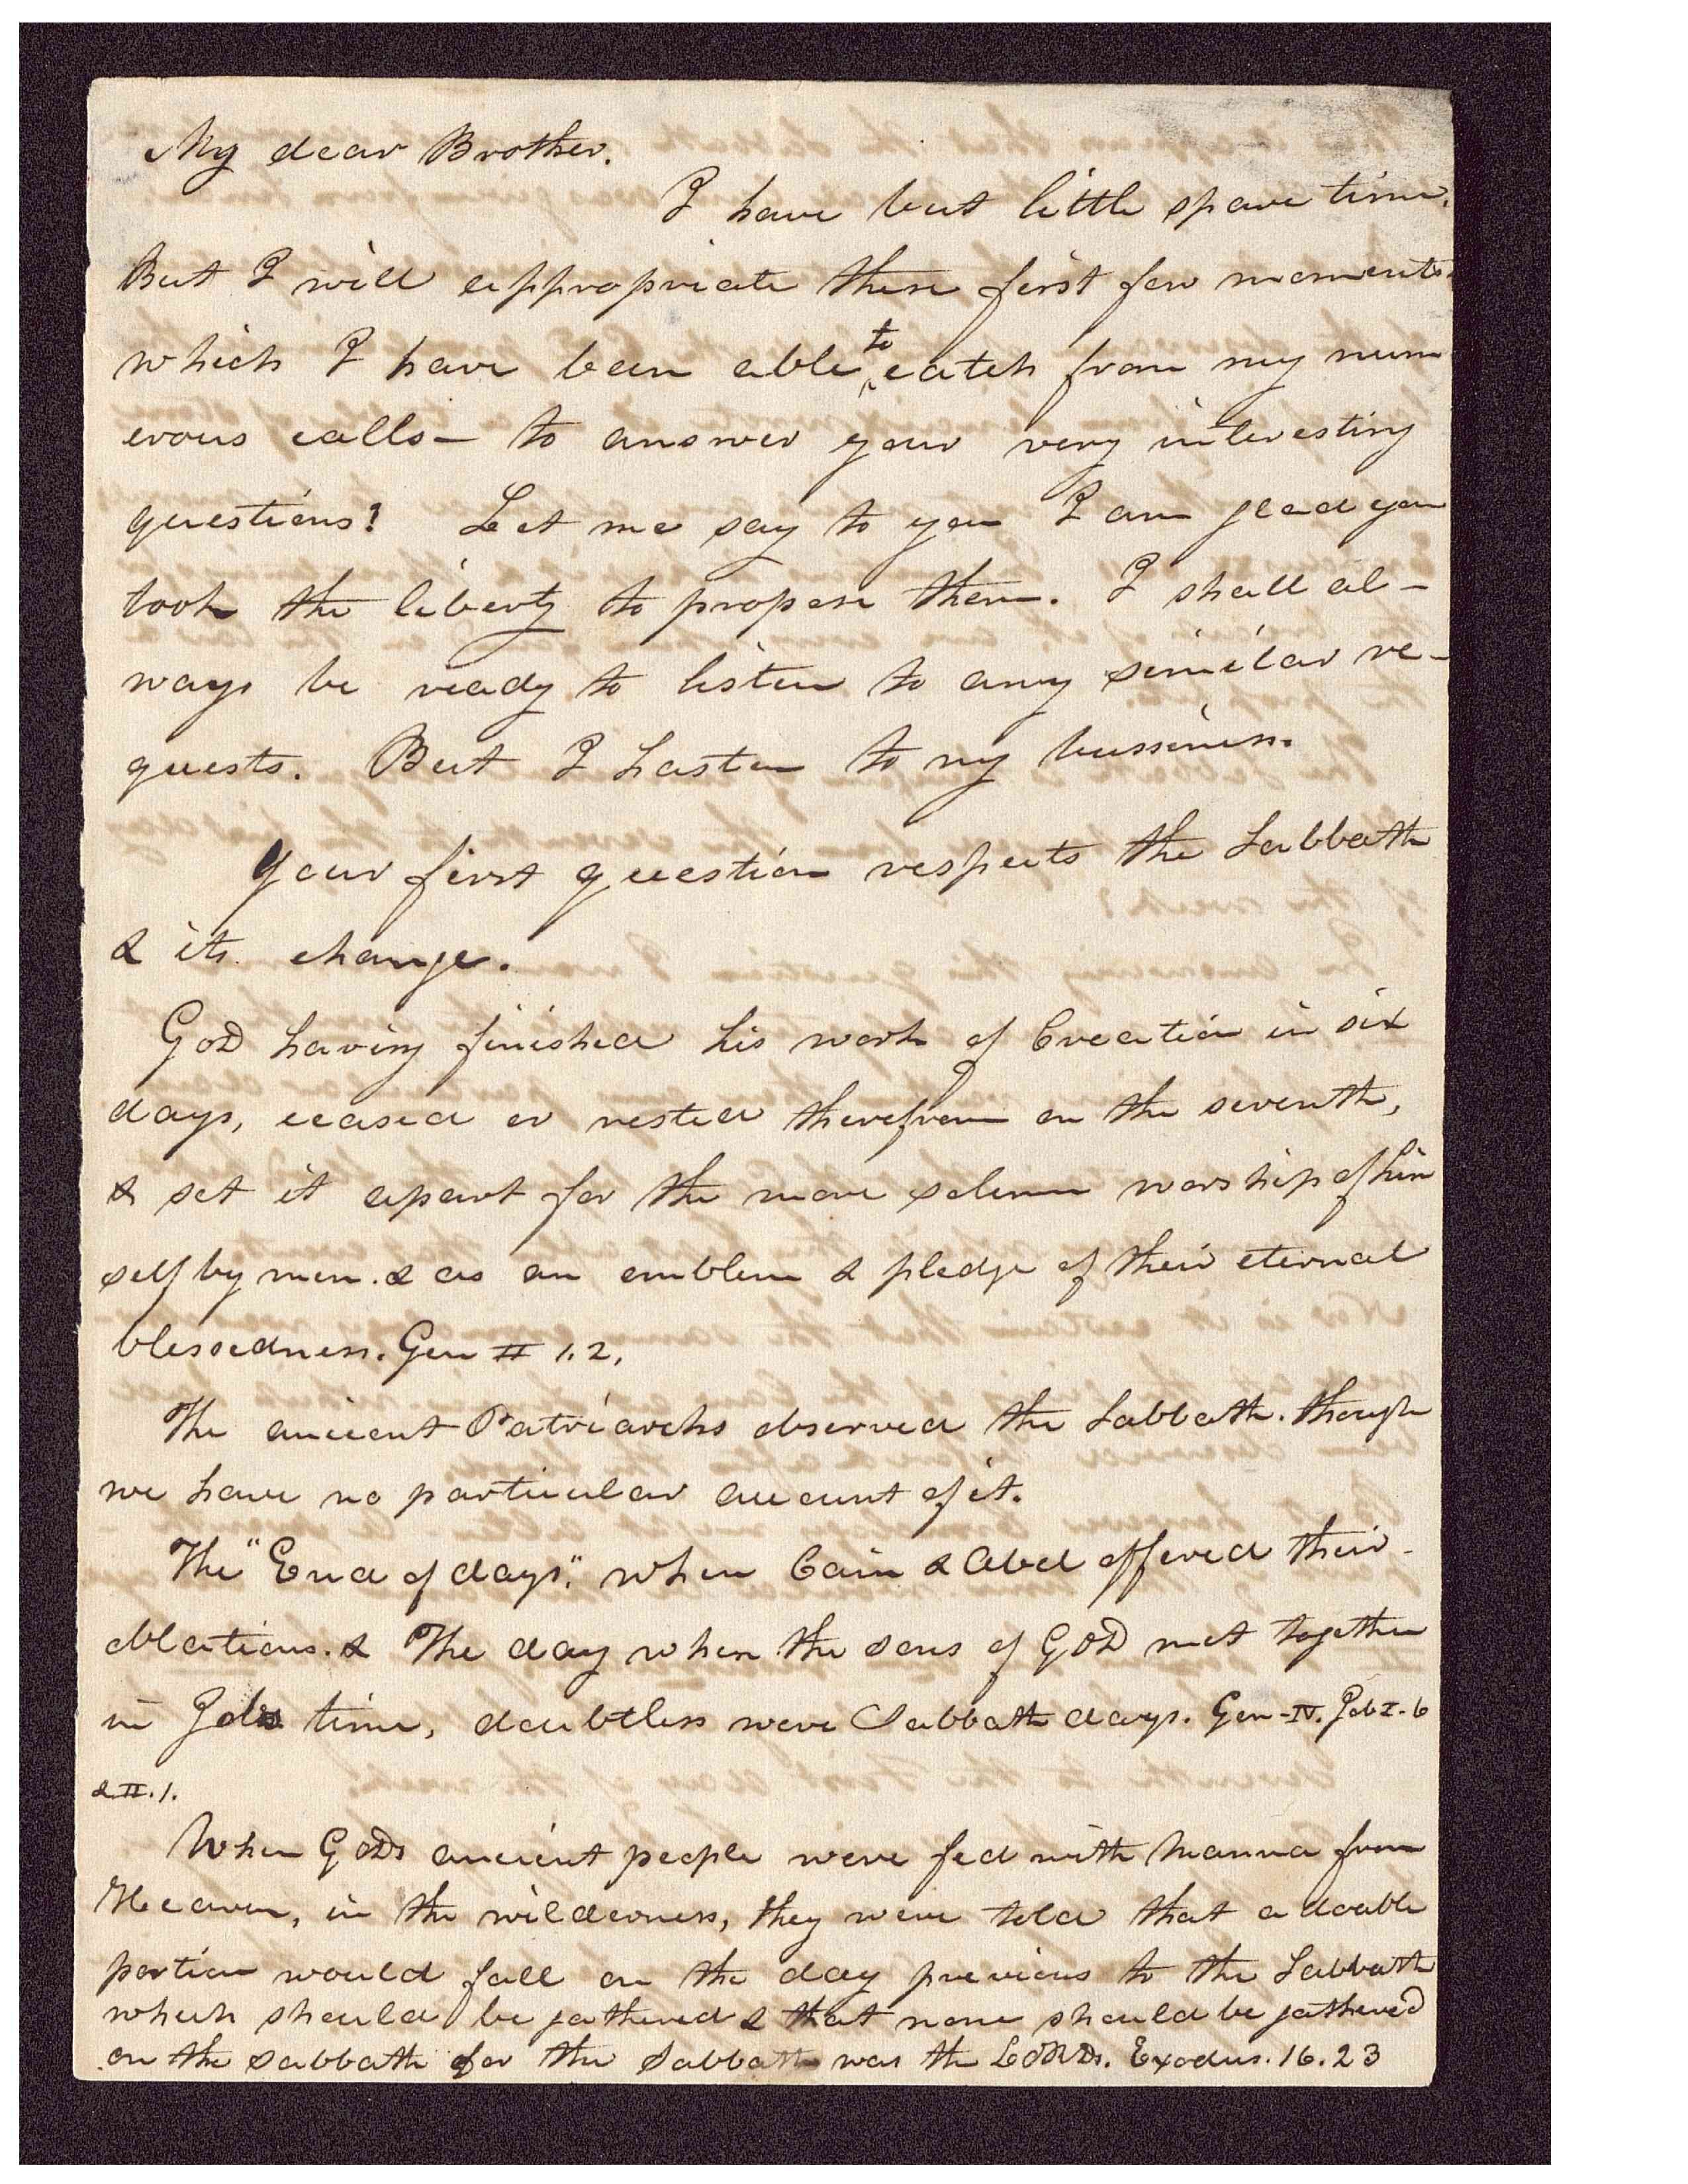 My dear Brother.
I have but little spare time.
But I will appropriate these first few moments
which I have been able to catch from my num
erous calls - to answer your very interesting
questions! Let me say to you I am glad you
took the liberty to propose them. I shall al-
ways be ready to listen to any similar re-
quests. But I hasten to my bussiness.
Your first question respects the Sabbath
& its change.
GOD having finished his work of Creation in six
days, ceased or rested therefrom on the seventh,
& set it apart for the more solemn worship of him
self by men. & as an emblem & pledge of their eternal
blessedness. Gen II 1.2,
The ancient Patriarchs observed the Sabbath. though
we have no particular account of it.
The "End of days," when Cain & Abel offered their
oblations. & The day when the sons of GOD met together
in Jobs time, doubtless were Sabbath days. Gen-IV. Job I. 6
& II. 1.
When GODs ancient people were fed with Manna from
Heaven, in the wilderness, they were told that a double
portion would fall on the day previous to the Sabbath
which should be gathered & that none should be gathered
on the Sabbath for the Sabbath was the LORDs. Exodus. 16. 23